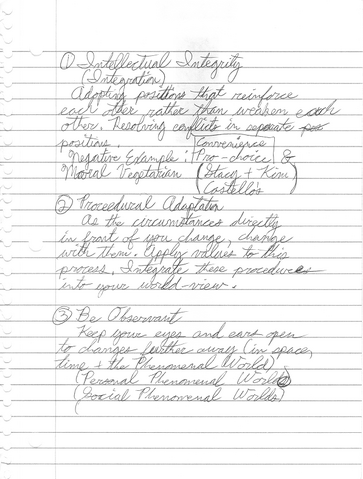 ① Intellectual Integrity
(Integration)
Adopting positions that reinforce
each other rather than weaken each
other. Resolving conflicts in seperate
positions.
Convenience
Negative Example: Pro-choice &
Moral Vegetarian (Stacy + Kim
Costello's
② Proceedural Adaptation
As the circumstances directly
in front of you change, change
with them. Apply values to this
process. Integrate these procedures
into your world-view.
③ Be Observant
Keep your eyes and ears open
to changes further away (in space,
time + the Phenomenal World)
(Personal Phenomenal Worlds)
(Social Phenomenal Worlds)
(